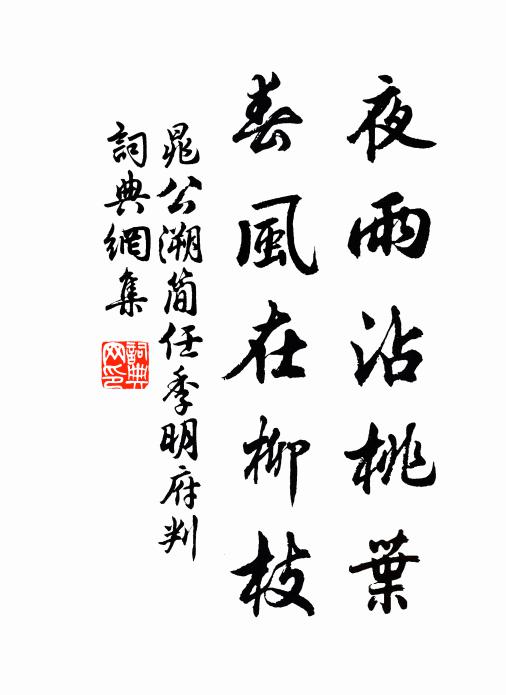 夜雨沾桃葉
春風在柳枝
晁公溯簡任季明府判
詞典網集
詞典网印